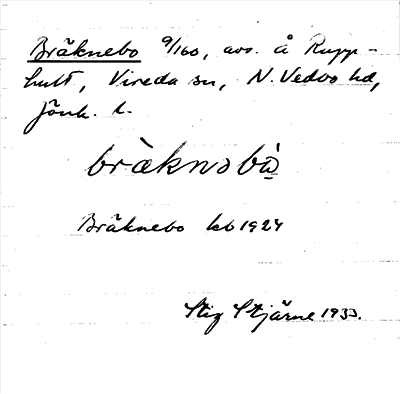 Bräknebo 9/160, avs. å Rupp-
hult, Vireda sn, N. Vedbo hd,
Jönk. l.
bràknəbò̲
Bräknebo kb 1924
Stig Stjärne 1933.